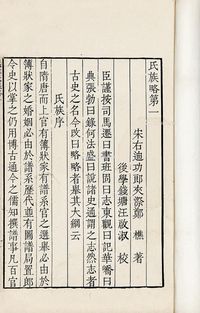 氏族略第一
宋右迪功郎夾漈鄭 樵 著
後學錢塘汪啟淑 校
臣謹按司馬遷曰書班固曰志東觀曰記華嶠曰
典張勃曰錄何法盛曰說諸史通謂之志然志者
古史之名今改曰略略者舉其大綱云
氏族序
自隋唐而上官有簿狀家有譜系官之選舉必由於
簿狀家之婚姻必由於譜系歷代並有圖譜局置郎
令史以掌之仍用博古通今之儒知撰譜事凡百官